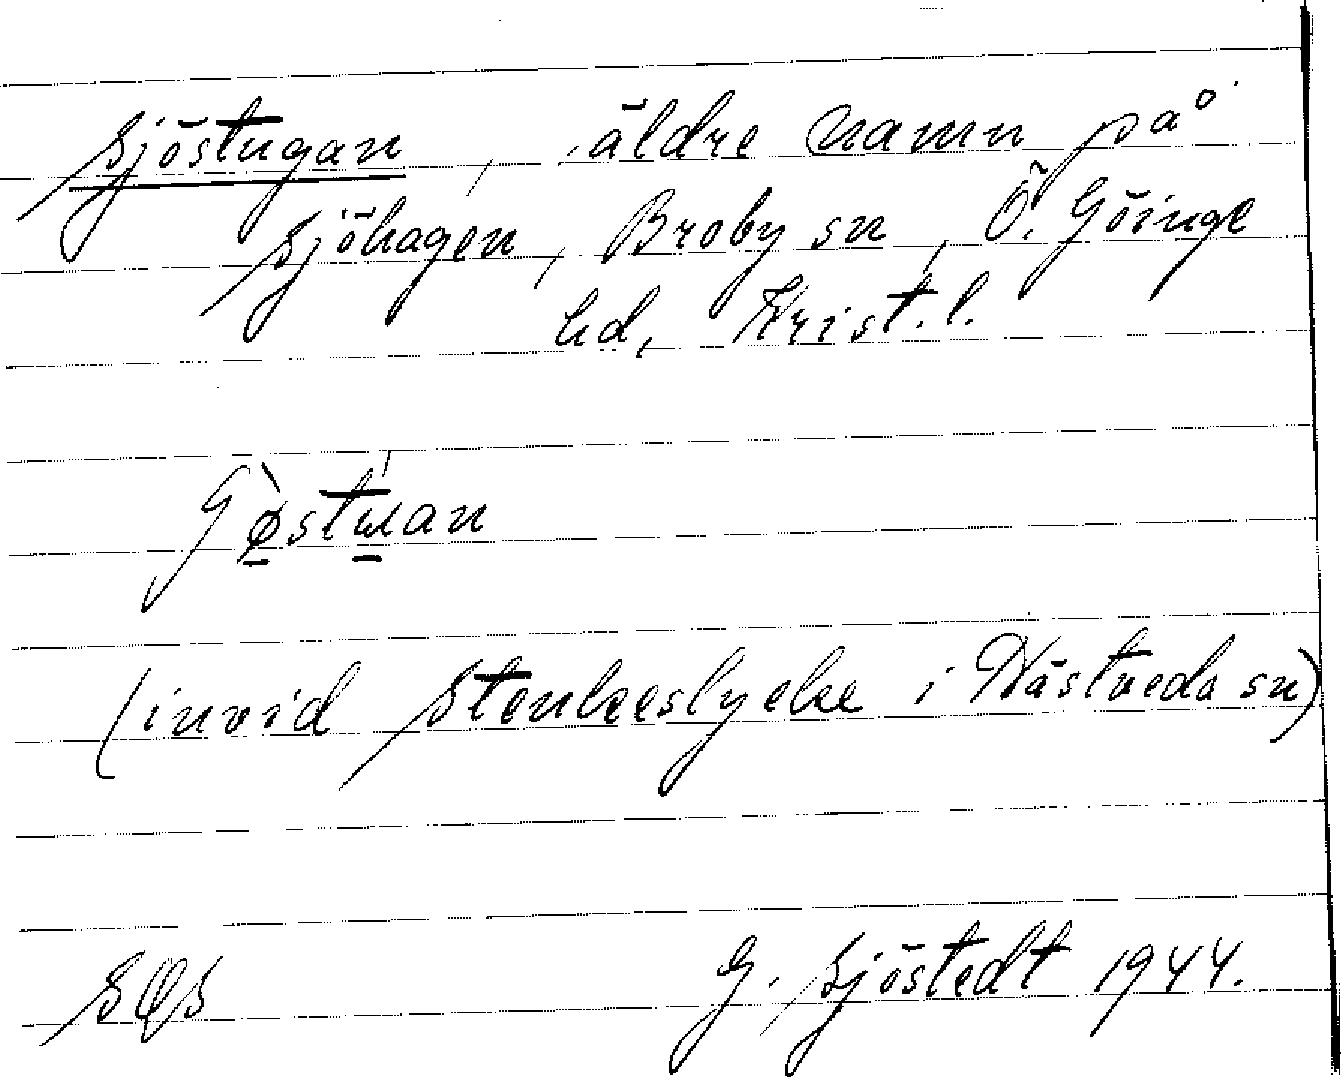 Sjöstugan, äldre namn på
Sjöhagen, Broby sn, Ö. Göinge
hd, Krist. l.
(invid Stenkeslycke i Hästveda sn)
SOS G. Sjöstedt 1944.